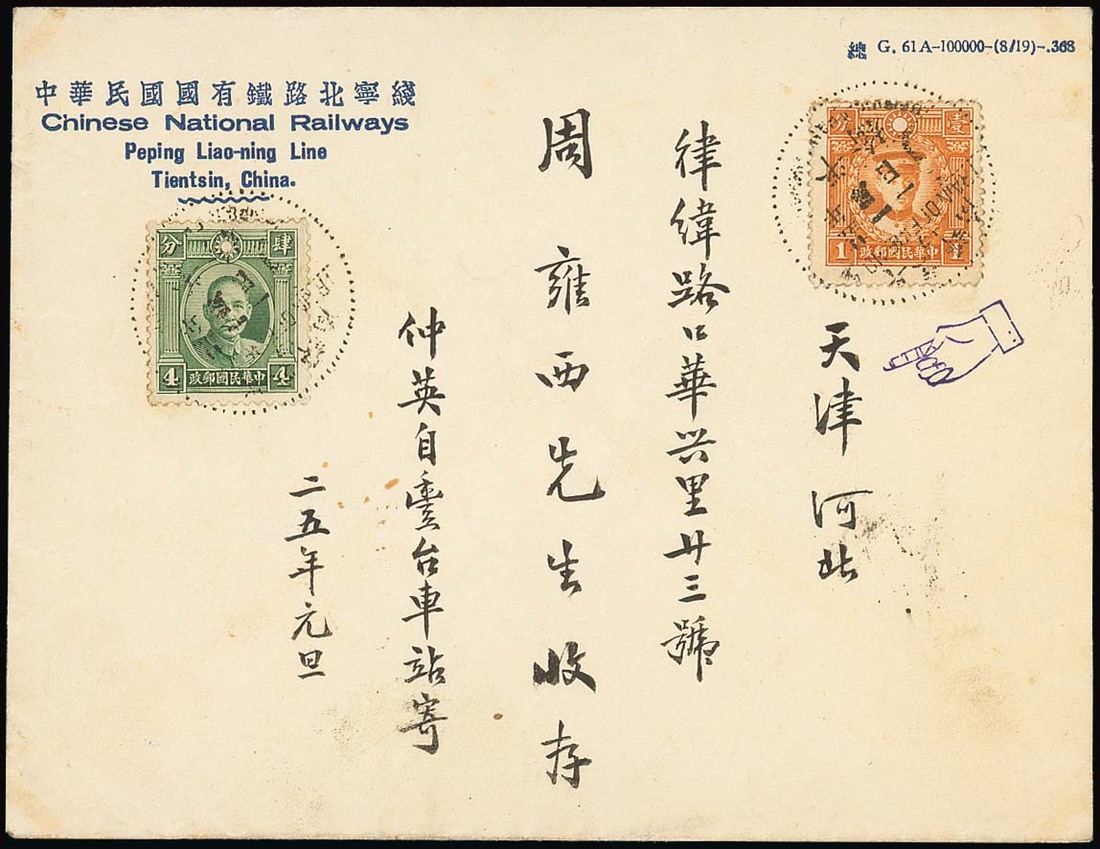 總 G. 61A-100000-(8/19)-.368
中華民國國有鐵路北寧綫
Chinese National Railways
Peping Liao-ning Line
Tientsin, China.
天津河北
律緯路口華兴里廿三號
周雍西先生收存
仲英自臺台車站寄
二五年元旦
分 肆
4 4
政郵國民華中
分 壹
1 壹
政郵國民華中